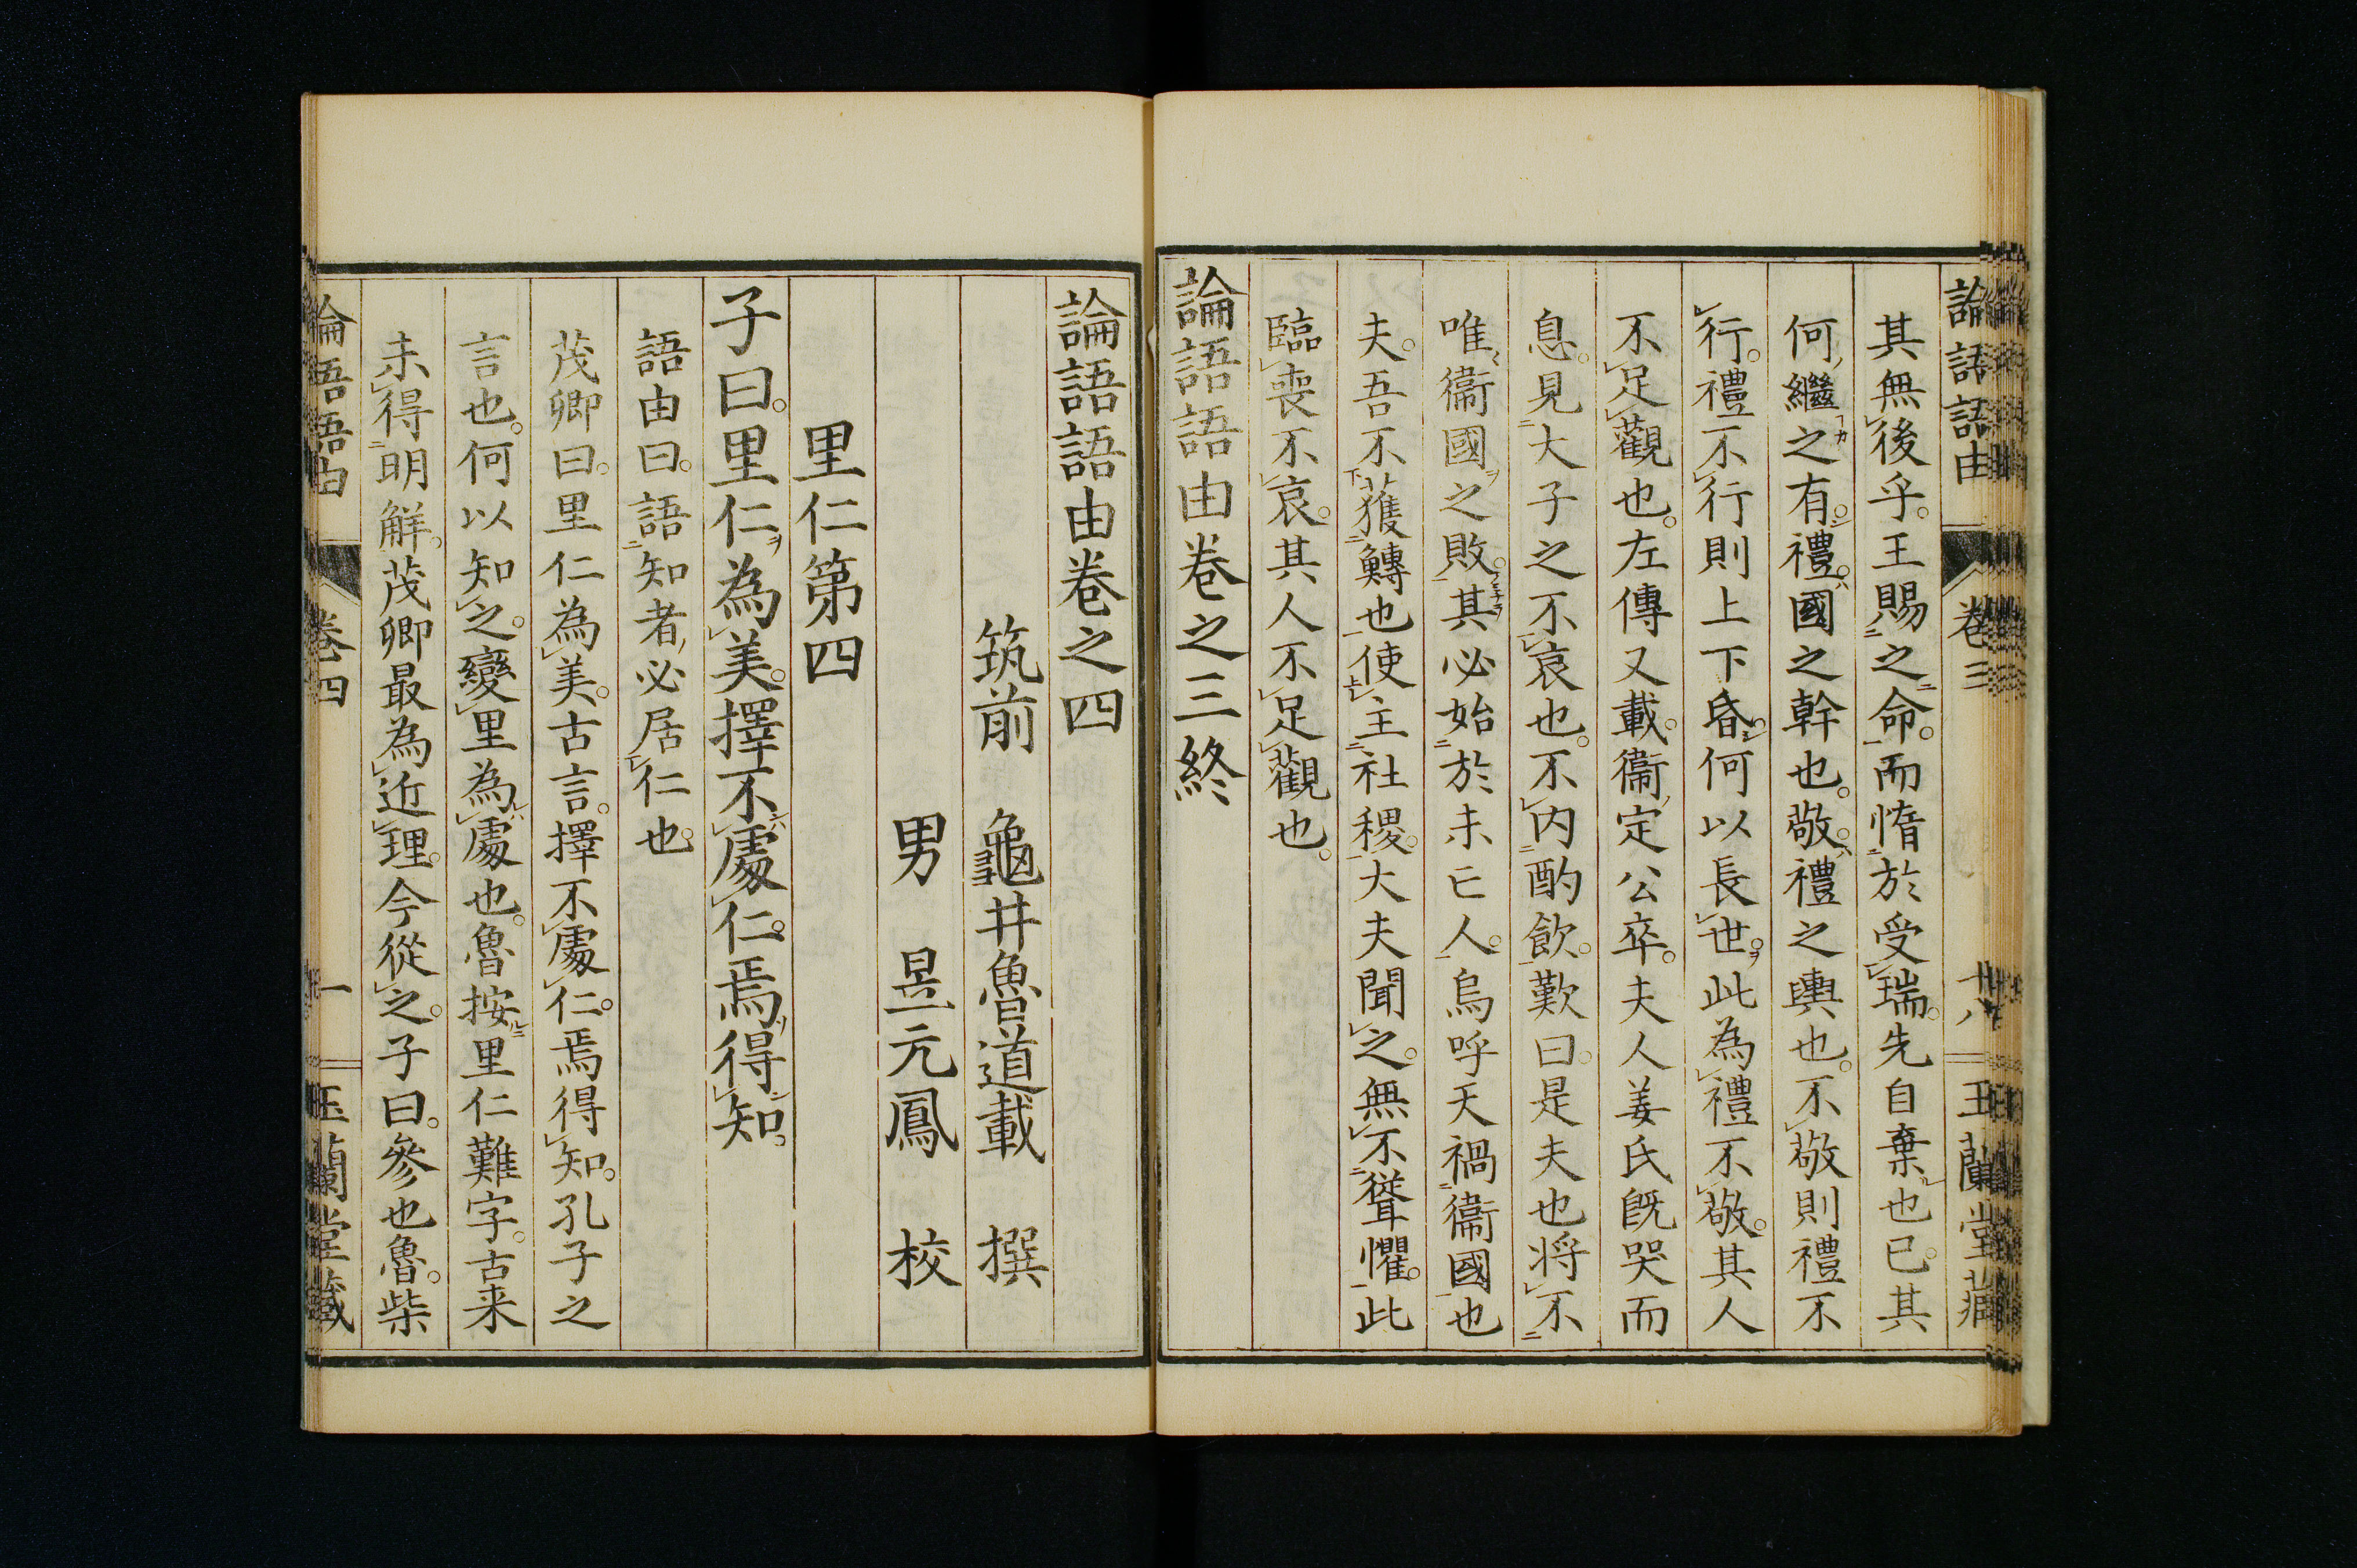 論語語由 卷三 十八 玉蘭堂藏
其無後乎。王賜之命。而惰於受瑞。先自棄也已。其
何繼之有。禮。國之幹也。敬。禮之輿也。不敬則禮不
行。禮不行則上下昏。何以長世。此為禮不敬。其人
不足觀也。左傳又載。衞定公卒。夫人姜氏既哭而
息。見大子之不哀也。不内酌飲。歎曰。是夫也將不
唯衞國之敗。其必始於未亡人。烏呼天禍衞國也
夫。吾不獲鱄也使主社稷。大夫聞之。無不聳懼。此
臨喪不哀。其人不足觀也。
論語語由卷之三終
論語語由卷之四
筑前 龜井魯道載 撰
男 昱元鳳 校
里仁第四
子曰。里仁為美。擇不處仁。焉得知。
語由曰。語知者必居仁也。
茂卿曰。里仁為美。古言。擇不處仁。焉得知。孔子之
言也。何以知之。變里為處也。魯按里仁難字。古来
未得明解。茂卿最為近理。今從之。子曰。參也魯。柴
論語語由 卷四 一 玉蘭堂藏